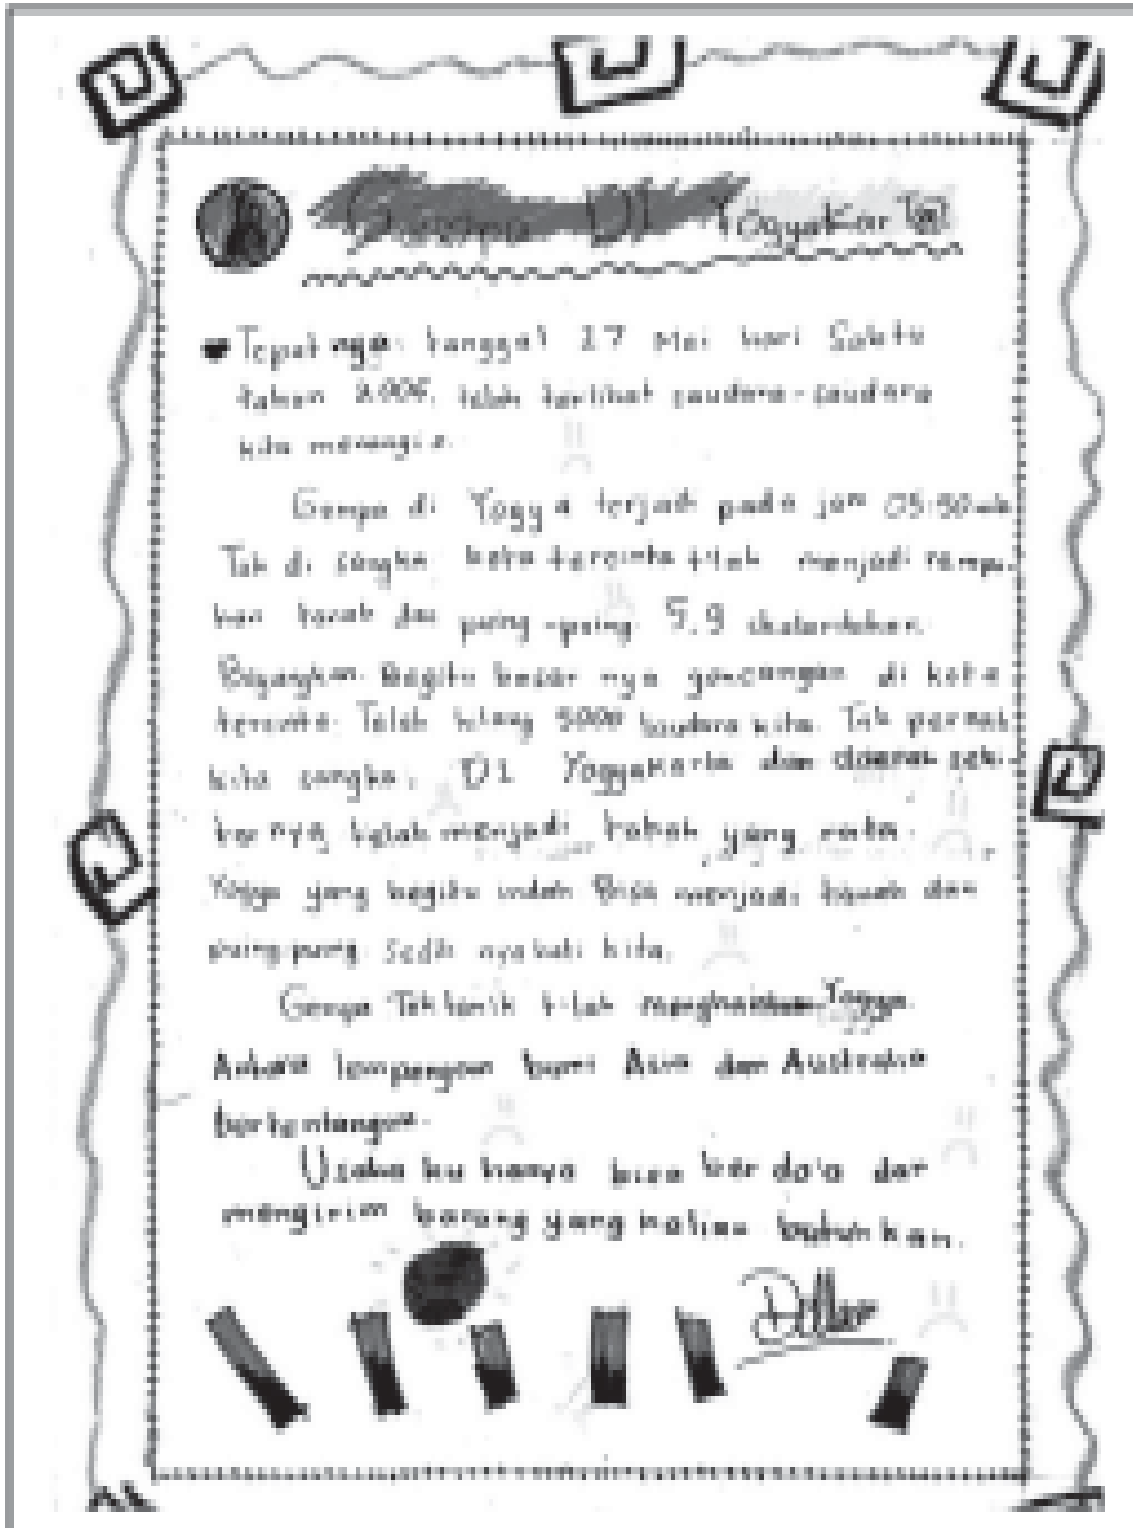 Gempa DI Yogyakarta
Tepatnya tanggal 27 Mei hari Sabtu
tahun 2006, telah terlihat saudara-saudara
kita menangis.
Gempa di Yogya terjadi pada jam
Tak di sangka kota tercinta telah menjadi rempu-
han tanah dan puing-puing 5.9
Bayangkan Begitu besar nya goncangan di kota
tercinta. Telah hilang 5000 saudara kita. Tak pernah
kita sangka, DI Yogyakarta dan daerah seki-
tar nya telah menjadi tanah yang rata.
Yogya yang begitu indah Bisa menjadi tanah dan
puing-puing. Sedih nya hati kita.
Gempa Tektonik telah Yogya.
Antara lempengan bumi Asia dan Australia
bertentangan.
Usaha ku hanya bisa ber do'a dan
mengirim barang yang kalian butuh kan.